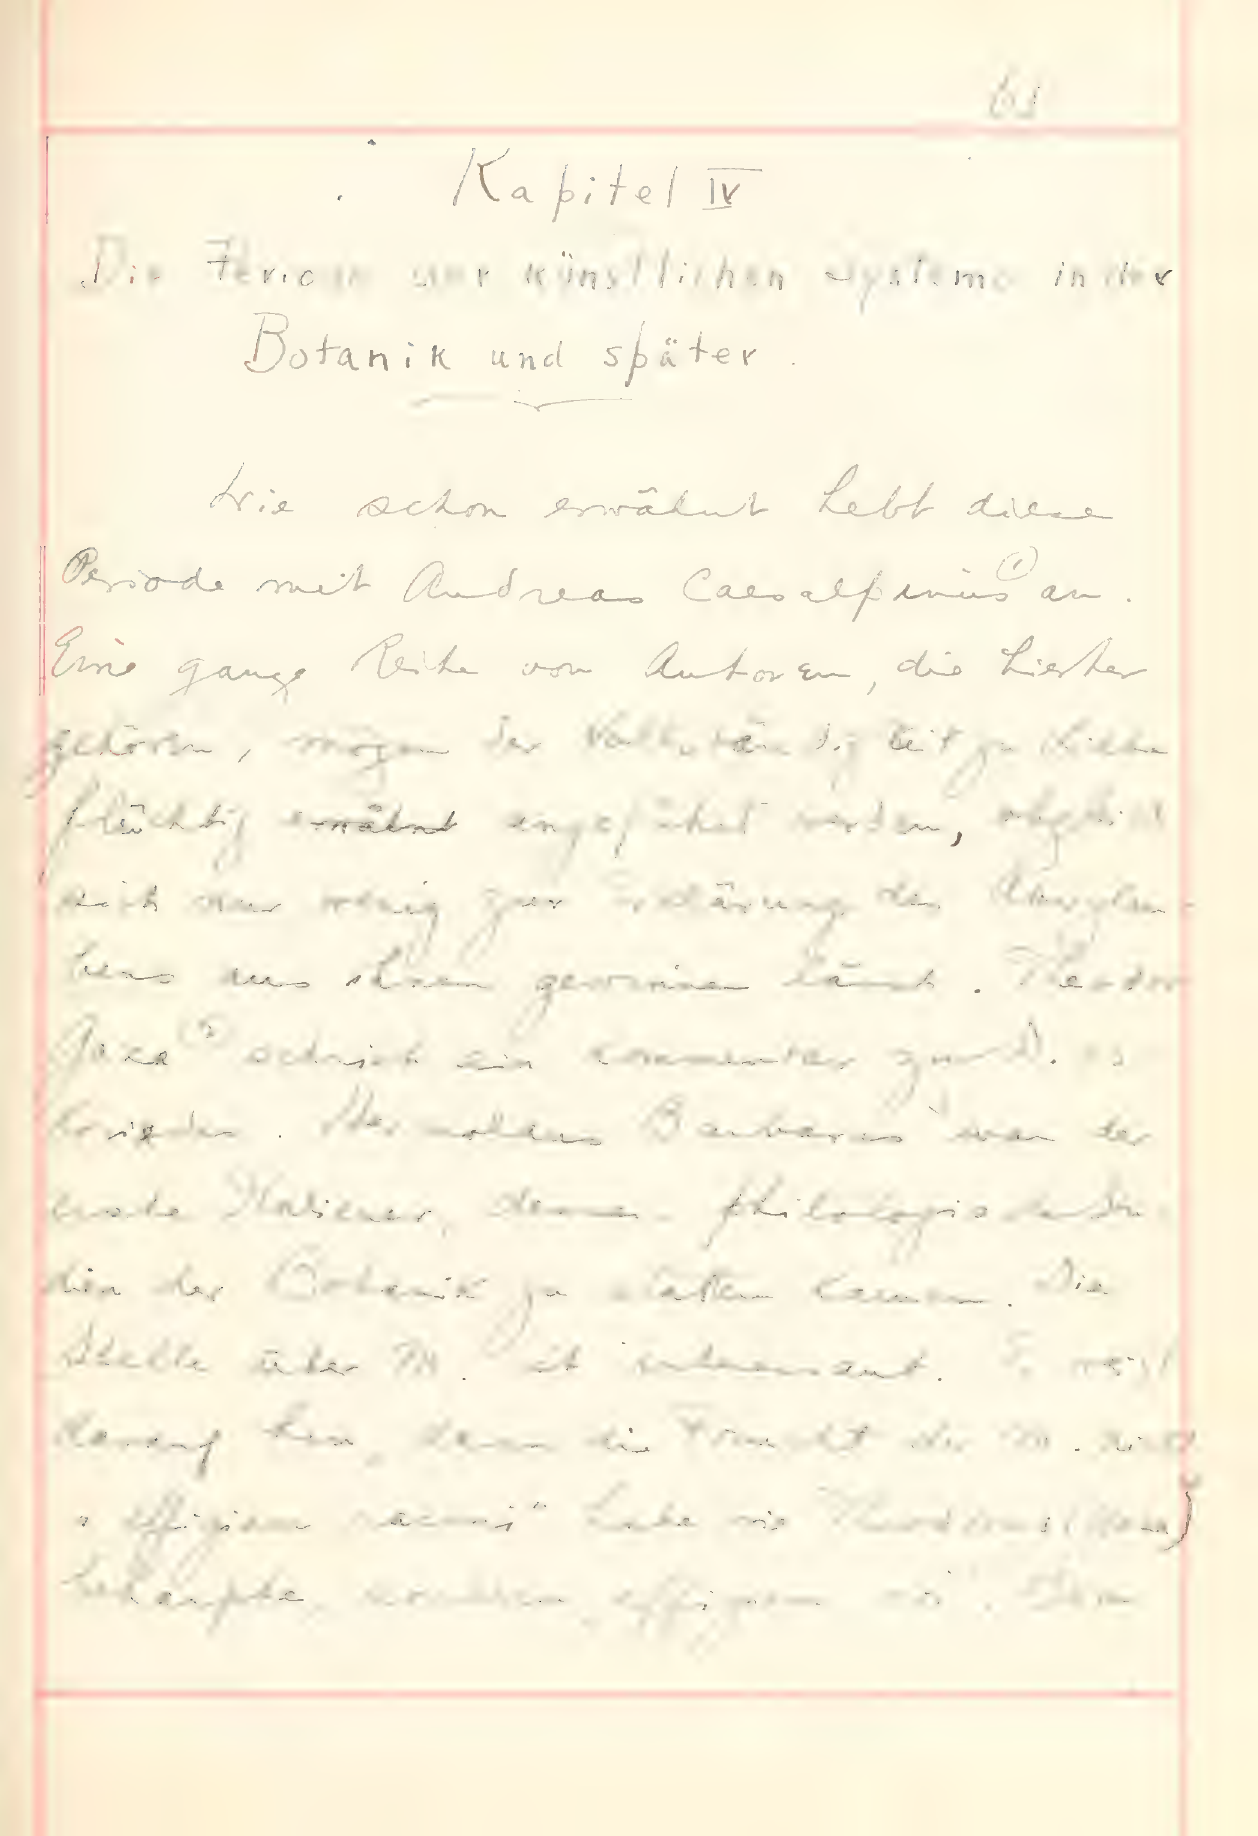 61
Kapitel IV
Die Periode der künstlichen Systeme in der
Botanik und später.
Wie schon erwähnt hebt diese
Periode mit Andreas Caesalpinus (1) an.
Eine ganze Reihe von Autoren, die hierher
gehören, mögen der Vollständigkeit zu Liebe
flüchtig erwähnt angeführt werden, obgleich
sich nur wenig zur Erklärung des Aberglau-
bens aus ihnen gewinnen lässt. Theodor
Gaza schrieb ein commentar zu D.
Hermolaus Barbarus war der
erste Italiener, dessen philologische Stu-
dien der Botanik zu statten kamen. Die
Stelle über M. ist interessant. E. weist
darauf hin, dass die Frucht der M. nicht
„effigiem racemi“ habe wie Theodorus (Gaza)
behaupte, sondern effigiem ovi.